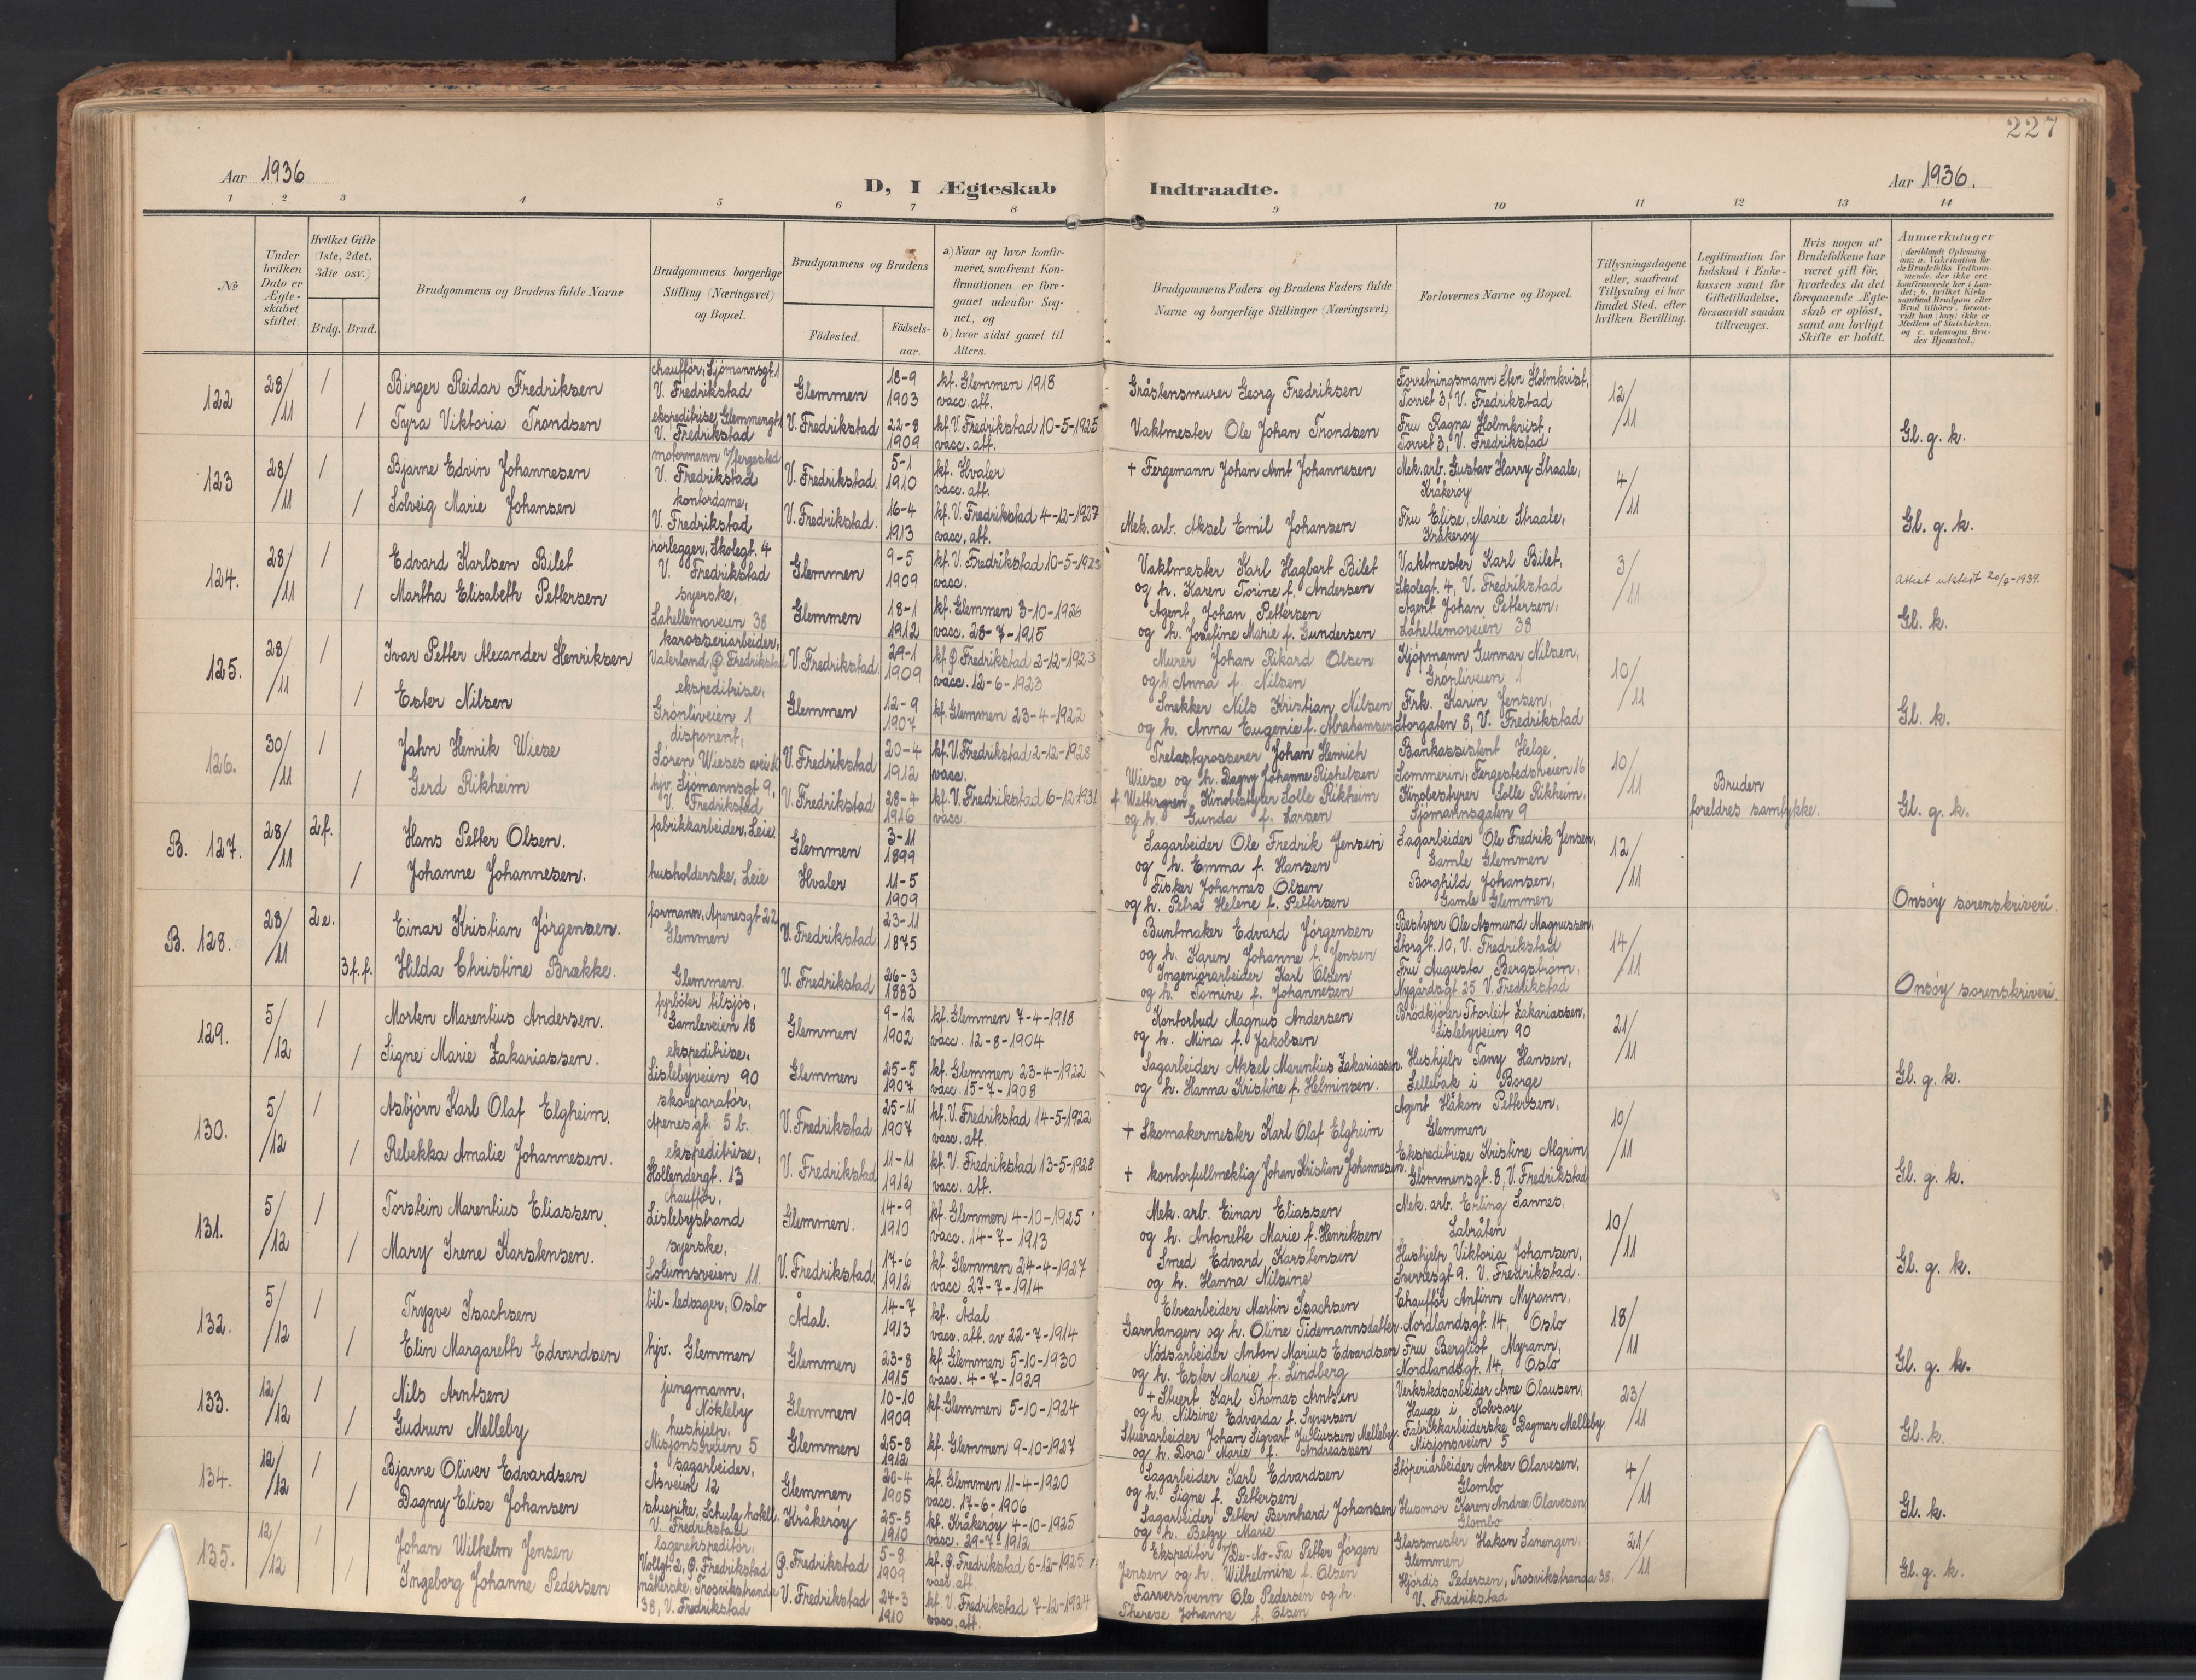 227
Aar 1936
D, I Ægteskab Indtraadte.
Aar 1936.
1 2 3 4 5 6 7 8 9 10 11 12 13 14
No
Under hvilken Dato er Ægteskabet stiftet.
Hvilket Gifte (1ste, 2det, 3die osv.)
Brdg. Brud.
Brudgommens og Brudens fulde Navne
Brudgommens borgerlige Stilling (Næringsvei) og Bopæl.
Brudgommens og Brudens
Födested.
Födselsaar.
a) Naar og hvor konfirmeret, saafremt Konfirmationen er foregaaet udenfor Sognet, og
b) hvor sidst gaaet til Alters.
Brudgommens Faders og Brudens Faders fulde Navne og borgerlige Stillinger (Næringsvei)
Forlovernes Navne og Bopæl.
Tillysningsdagene eller, saafremt Tillysning ei har fundet Sted, efter hvilken Bevilling.
Legitimation for Indskud i Enkekassen samt for Giftetilladelse, forsaavidt saadan tiltrænges.
Hvis nogen af Brudefolkene har været gift för, hvorledes da det foregaaende Ægteskab er oplöst, samt om lovligt Skifte er holdt.
Anmerkninger
122 28/11 / Birger Reidar Fredriksen chauffør, Sjømannsgt. 1 V. Fredrikstad Glemmen 18-9 1903 kf. Glemmen 1918 vacc. att. Gråstensmurer Georg Fredriksen Forretningsmann Sten Holmkvist, Torvet 3, V. Fredrikstad 12/11
/ Tyra Viktoria Trondsen ekspeditrise, Glemmengt. V. Fredrikstad V. Fredrikstad 22-8 1909 kf. V. Fredrikstad 10-5-1925 vacc. att. Vaktmester Ole Johan Trondsen Fru Ragna Holmkvist, Torvet 3, V. Fredrikstad Gl. g. k.
123 28/11 / Bjarne Edvin Johannesen motormann V. Fredrikstad V. Fredrikstad. 5-1 1910 kf. Hvaler vacc. att. + Fergemann Johan Arnt Johannesen Mek. arb. Gustav Harry Straale, Kråkerøy 4/11
/ Solveig Marie Johansen kontordame, V. Fredrikstad V. Fredrikstad. 16-4 1913 kf. V. Fredrikstad 4-12-1927 vacc. att. Mek. arb. Aksel Emil Johansen Fru Elise Marie Straale, Kråkerøy Gl. g. k.
124. 28/11 / Edvard Karlsen Bilet rørlegger, Skolegt. 4 V. Fredrikstad Glemmen 9-5 1909 kf. V. Fredrikstad 10-5-1923 vacc. Vaktmester Karl Hagbart Bilet og h. Karen Torine f. Andersen Vaktmester Karl Bilet, Skolegt. 4, V. Fredrikstad 3/11 Attest utstedt 20/9-1939.
/ Martha Elisabeth Pettersen syerske, Lahellemoveien 38 Glemmen 18-1 1912 kf. Glemmen 3-10-1926 vacc. 28-7-1915 Agent Johan Pettersen og h. Josefine Marie f. Gundersen Agent Johan Pettersen, Lahellemoveien 38 Gl. k.
125. 28/11 / Ivar Petter Alexander Henriksen karosseriarbeider, Vaterland, Ø. Fredrikstad V. Fredrikstad. 29-1 1909 kf. Ø. Fredrikstad 2-12-1923 vacc. 12-6-1923 Murer Johan Rikard Olsen og h. Anna f. Nilsen Kjøpmann Gunnar Nilsen, Grønliveien 1 10/11
/ Ester Nilsen ekspeditrise, Grønliveien 1 Glemmen 12-9 1907 kf. Glemmen 23-4-1922 Snekker Nils Kristian Nilsen og h. Anna Eugenie f. Abrahamsen Frk. Karin Jensen, Storgaten 8, V. Fredrikstad Gl. k.
126. 30/11 / Jahn Henrik Wiese disponent, Søren Wieses vei 10 V. Fredrikstad 20-4 1912 kf. V. Fredrikstad 2-12-1928 vacc. Trelastgrosserer Johan Henrich Wiese og h. Dagny Johanne Richelsen f. Wettergren Bankassistent Helge Sommerin, Fergestedsveien 16 10/11 Bruden foreldres samtykke.
/ Gerd Rikheim hjv. Sjømannsgt 9, V. Fredrikstad V. Fredrikstad 28-4 1916 kf. V. Fredrikstad 6-12-1931 vacc. Kinobestyrer Solle Rikheim og h. Gunda f. Larsen Kinobestyrer Solle Rikheim, Sjømannsgaten 9 Gl. g. k.
B. 127. 28/11 2 f. Hans Petter Olsen. fabrikkarbeider, Leie. Glemmen 3-11 1899 Sagarbeider Ole Fredrik Jensen og h. Emma f. Hansen Sagarbeider Ole Fredrik Jensen, Gamle Glemmen 12/11
/ Johanne Johannesen. husholderske, Leie Hvaler 11-5 1909 Fisker Johannes Olsen og h. Petra Helene f. Pettersen Borghild Johansen, Gamle Glemmen Onsøy sorenskriveri.
B. 128. 28/11 2 e. Einar Kristian Jørgensen. formann, Apenesgt 22 Glemmen V. Fredrikstad 23-11 1875 Buntmaker Edvard Jørgensen og h. Karen Johanne f. Jensen Bestyrer Ole Asmund Magnussen, Storgt. 10, V. Fredrikstad 14/11
3 f. f. Hilda Christine Brække. Glemmen. V. Fredrikstad 26-3 1883 Ingeniørarbeider Karl Olsen og h. Tomine f. Johannesen Fru Augusta Bergstrøm, Nygårdsgt 25 V. Fredrikstad Onsøy sorenskriveri.
129. 5/12 / Morten Marentius Andersen. fyrbøter tilsjøs, Gamleveien 18 Glemmen 9-12 1902 kf. Glemmen 7-4-1918 vacc. 12-8-1904 Kontorbud Magnus Andersen og h. Mina f. Jakobsen Brødkjører Thorleif Zakariassen, Lislebyveien 90 21/11
/ Signe Marie Zakariassen. ekspeditrise, Lislebyveien 90 Glemmen 25-5 1907 kf. Glemmen 23-4-1922 vacc. 15-7-1908 Sagarbeider Aksel Marentius Zakariassen. og h. Hanna Kristine f. Helminsen. Hushjelp Tony Hansen, Sellebak i Borge Gl. g. k.
130. 5/12 / Asbjørn Karl Olaf Elgheim. skoreparatør, Apenesgt. 5 b. V. Fredrikstad 25-11 1907 kf. V. Fredrikstad 14-5-1922 vacc. att. + Skomakermester Karl Olaf Elgheim Agent Håkon Pettersen, Glemmen 10/11
/ Rebekka Amalie Johannesen. ekspeditrise, Hollendergt. 13 V. Fredrikstad 11-11 1912 kf. V. Fredrikstad 13-5-1928 vacc. att. + kontorfullmektig Johan Kristian Johannesen. Ekspeditrise Kristine Algrim, Glommensgt. 8, V. Fredrikstad Gl. g. k.
131. 5/12 / Torstein Marentius Eliassen. chauffør, Lislebystrand Glemmen. 14-9 1910 kf. Glemmen 4-10-1925 vacc. 14-7-1913 Mek. arb. Einar Eliassen og h. Antonette Marie f. Henriksen Mek. arb. Erling Sannes, Labråten 10/11
/ Mary Irene Karstensen. syerske, Solumsveien 11. V. Fredrikstad 17-6 1912 kf. Glemmen 24-4-1927 vacc. 27-7-1914 Smed Edvard Karstensen og h. Hanna Nilsine Hushjelp Viktoria Johansen, Sverresgt 9. V. Fredrikstad. Gl. g. k.
132. 5/12 / Trygve Isachsen bil-ledsager, Oslo Ådal. 14-7 1913 kf. Ådal vacc. att. av 22-7-1914 Elvearbeider Martin Isachsen Garntangen og h. Oline Tidemannsdatter. Chauffør Anfinn Myrann, Nordlandsgt. 14, Oslo 18/11
/ Elin Margareth Edvardsen hjv. Glemmen Glemmen 23-8 1915 kf. Glemmen 5-10-1930 vacc. 4-7-1929 Nødsarbeider Anton Marius Edvardsen og h. Ester Marie f. Lindberg Fru Bergliot Myrann, Nordlandsgt. 14, Oslo Gl. g. k.
133. 12/12 / Nils Arntsen jungmann, Nøkleby Glemmen 10-10 1909 kf. Glemmen 5-10-1924 + Stuert Karl Thomas Arntsen og h. Nilsine Edvarda f. Syversen Verkstedsarbeider Arne Olausen, Hauge i Rolvsøy 23/11
/ Gudrun Melleby hushjelp, Misjonsveien 5 Glemmen 25-8 1912 kf. Glemmen 9-10-1927 Stuerarbeider Johan Sigvart Juliussen Melleby. og h. Dora Marie f. Andreassen Fabrikkarbeiderske Dagmar Melleby. Misjonsveien 5 Gl. k.
134. 12/12 / Bjarne Oliver Edvardsen sagarbeider, Åsveien 12 Glemmen 20-4 1905 kf. Glemmen 11-4-1920 vacc. 17-6-1906 Sagarbeider Karl Edvardsen og h. Signe f. Pettersen Støperiarbeider Anker Olavesen, Glombo 4/11
/ Dagny Elise Johansen stuepike, Schulz hotell, V. Fredrikstad Kråkerøy 25-5 1910 kf. Kråkerøy 4-10-1925 vacc. 29-7-1912 Sagarbeider Petter Bernhard Johansen og h. Betzy Marie Husmor Karen Andrea Olavesen Glombo Gl. k.
135. 12/12 / Johan Wilhelm Jensen lagerekspeditør, Vollgt. 2, Ø. Fredrikstad Ø. Fredrikstad 5-8 1909 kf. Ø. Fredrikstad 6-12-1925 vacc. att. Ekspeditør v/De-No-Fa Petter Jørgen Jensen og h. Wilhelmine f. Olsen Glassmester Håkon Sanengen, Glemmen 21/11
/ Ingeborg Johanne Pedersen Trosvikstranda 38, V. Fredrikstad V. Fredrikstad 24-3 1910 kf. V Fredrikstad 7-12-1924 vacc. att. Farversvenn Ole Pedersen og h. Therese Johanne f. Olsen Hjørdis Pedersen, Trosvikstranda 38, V. Fredrikstad Gl. g. k.